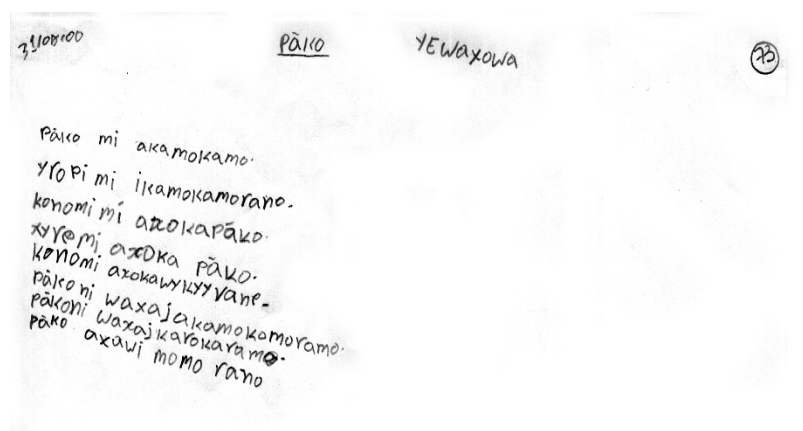 31/08.00 PÃKO YEWAXOWA 73
PÃKO mi akamokamo.
Yropi mi ikamokamorano.
konomi mi axokapãko.
xyremi axoka pãko.
konomi axokawykyyvane.
pãko ni waxajakamokamoramo.
pãkoni waxajkarokaramo.
pãko axawi momo rano